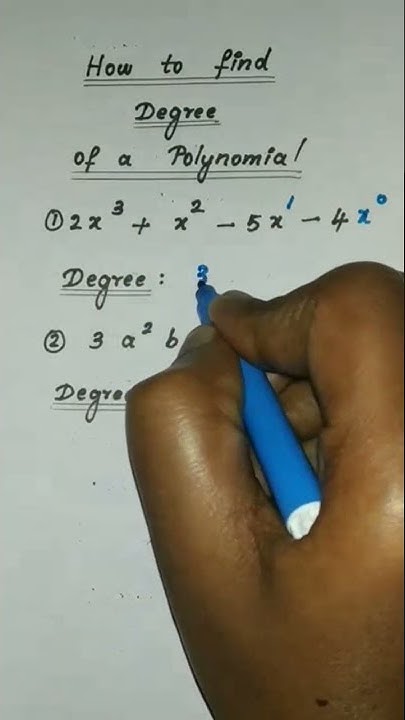 How to find
Degree
of a Polynomial
① 2x³ + x² - 5x¹ - 4x⁰
Degree : 3
② 3 a² b
Degree